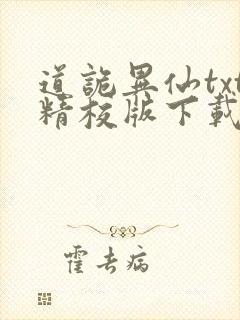 道詭異仙txt
精校版下載
霍去病